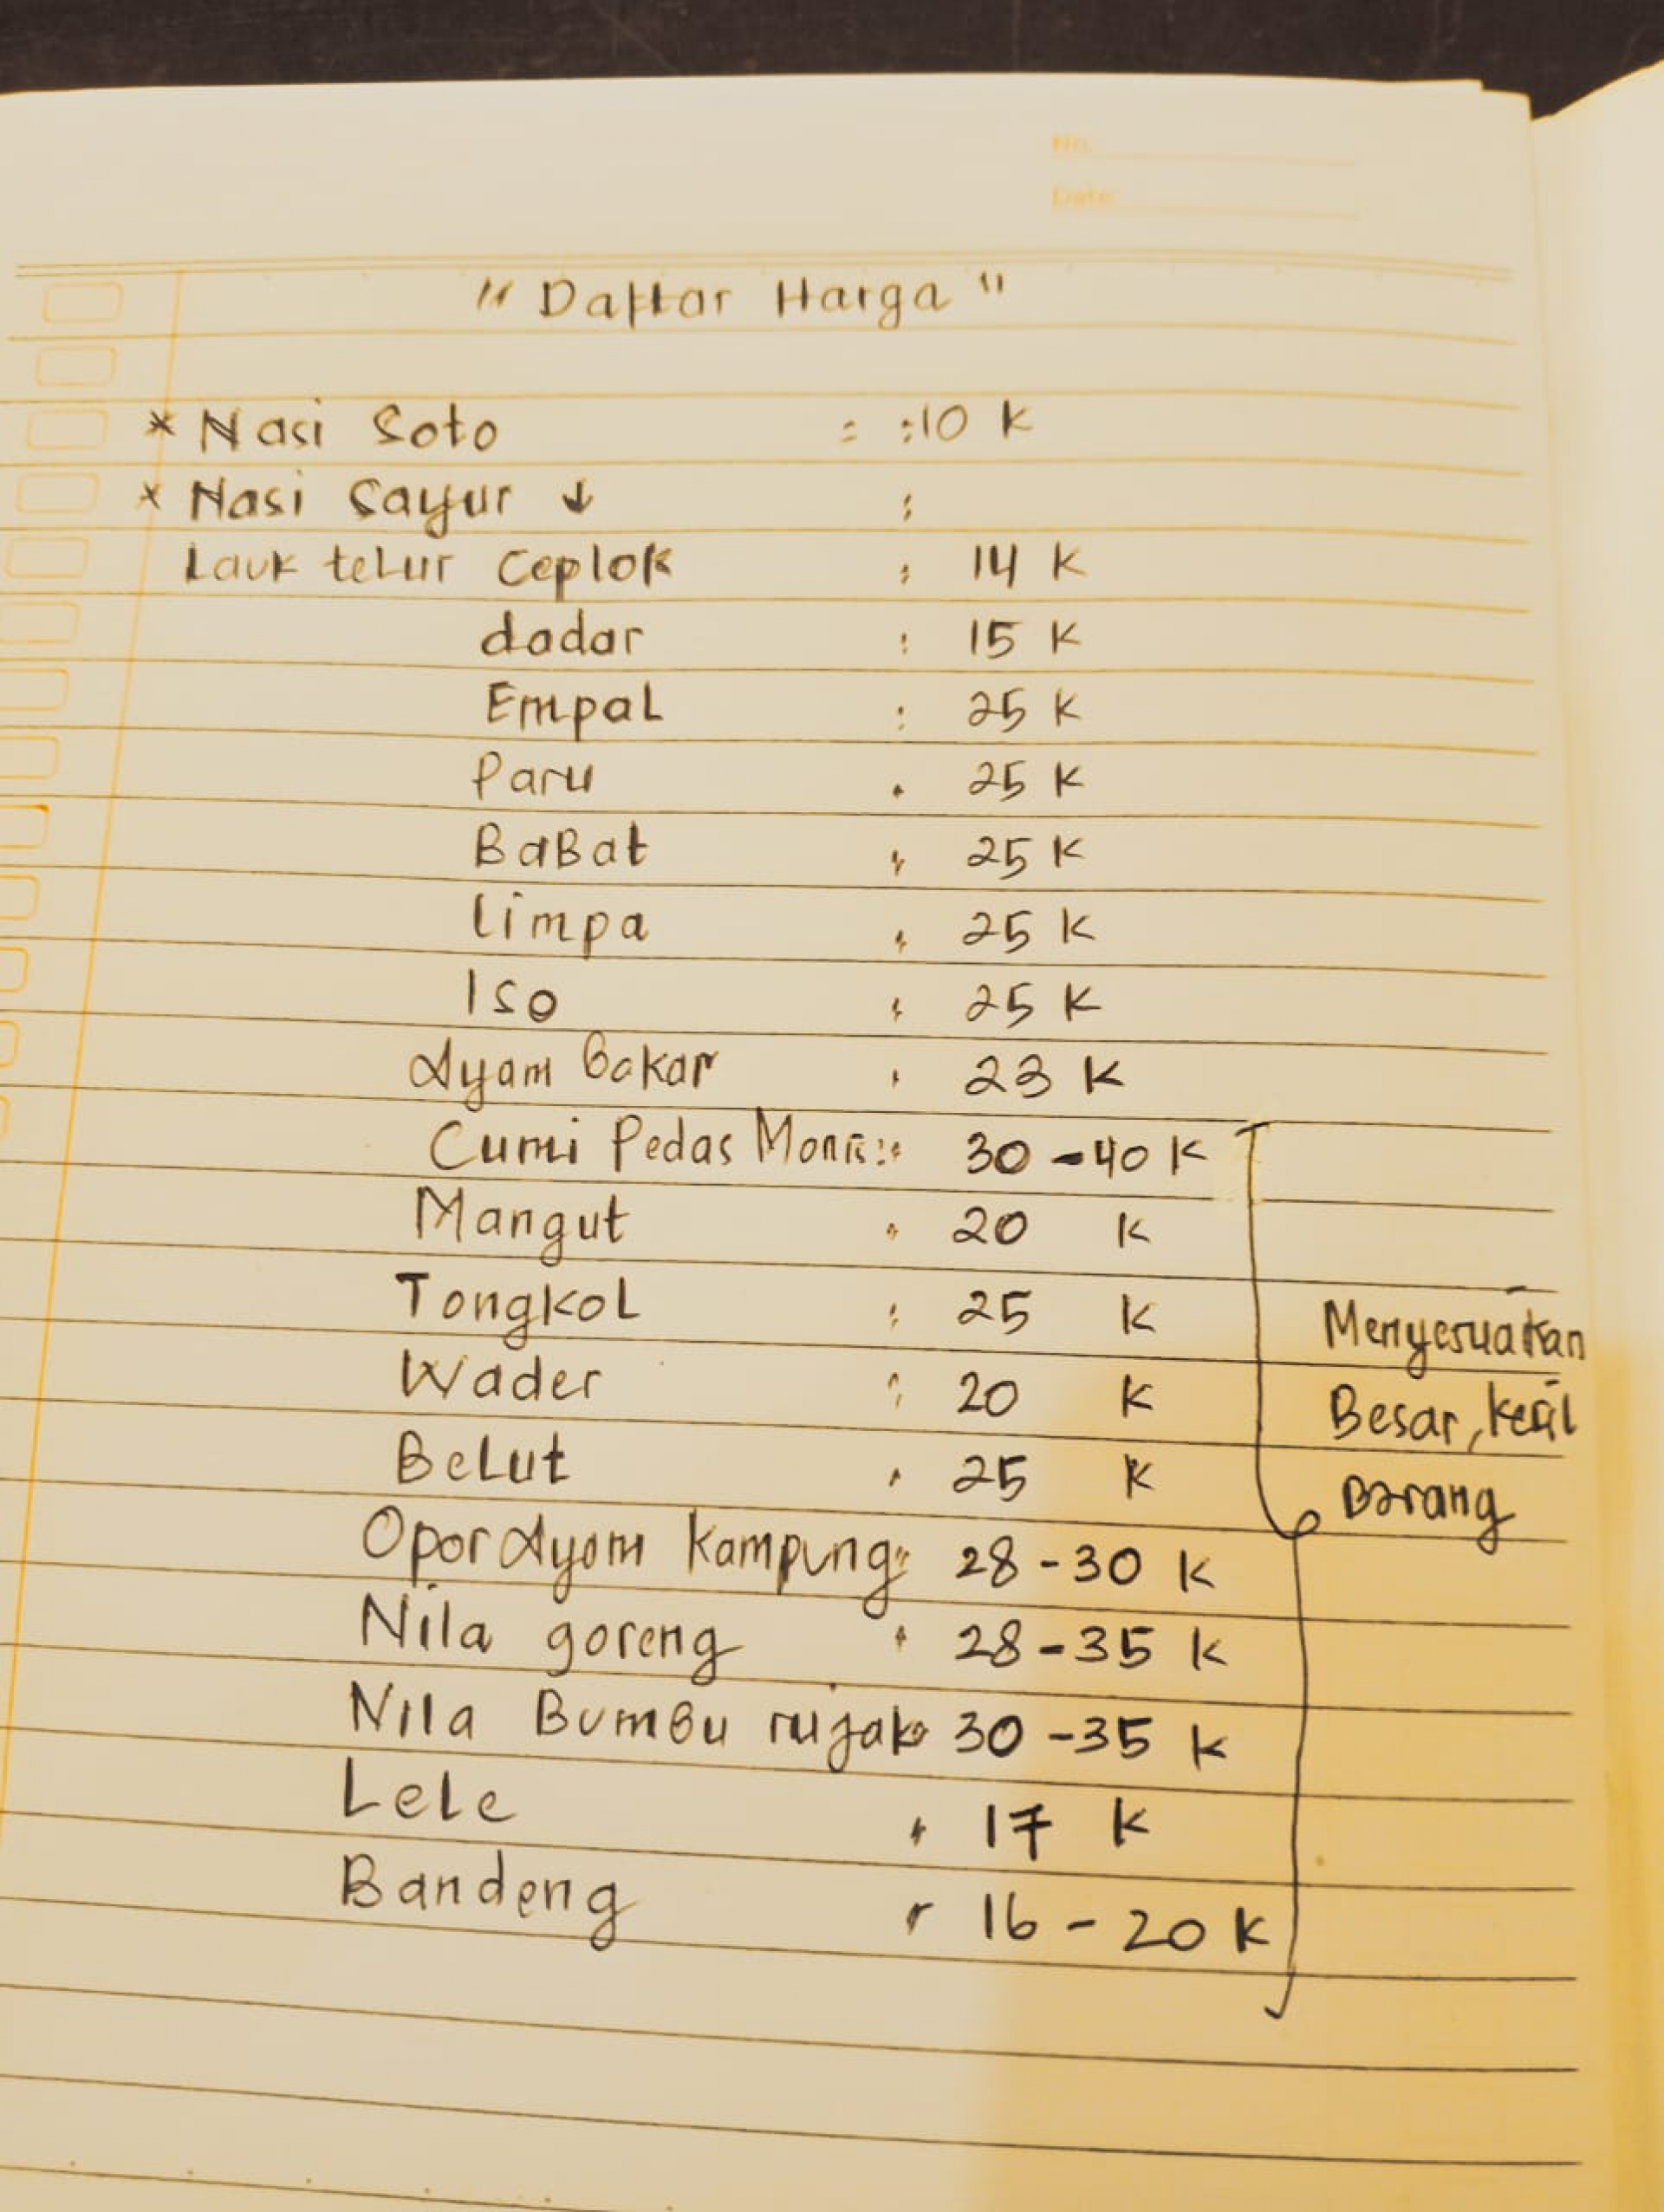 No.
Date:
"Daftar Harga"
* Nasi Soto : :10 K
* Nasi Sayur ↓ :
Lauk telur Ceplok : 14 K
dadar : 15 K
Empal : 25 K
Paru : 25 K
BaBat : 25 K
limpa : 25 K
Iso : 25 K
Ayam Bakar : 23 K
Cumi Pedas : 30 - 40 K
Mangut : 20 K
Tongkol : 25 K
Wader : 20 K
Belut : 25 K
Opor Ayam Kampung : 28 - 30 K
Nila goreng : 28 - 35 K
Nila Bumbu rujak : 30 - 35 K
Lele : 17 K
Bandeng : 16 - 20 K
Menyesuaikan
Besar, kecil
Barang